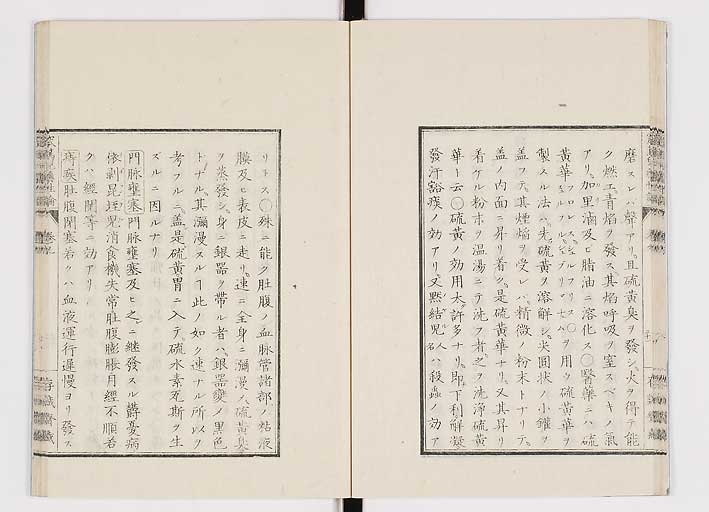 磨スレハ聲アリ且硫黄臭ヲ發シ火ヲ得テ能
ク燃エ青焰ヲ發ス其焰呼吸ヲ窒スベキノ氣
アリ加里滷及ヒ脂油ニ溶化ス○醫藥ニハ硫
黄華フロルレスシュルフリス○ヲ用ウ硫黄華ヲ
製スル法ハ先硫黄ヲ溶解シ尖圓状ノ小鑵ヲ
盖フテ其煙焰ヲ受レハ精微ノ粉末トナリテ
盖ノ内面ニ昇リ着ク是硫黄華ナリ又其昇リ
着ケル粉末ヲ温湯ニテ洗フ者之ヲ洗淨硫黄
華ト云○硫黄ノ効用太許多ナリ即下利解凝
發汗豁痰ノ効アリ又黙結児人ハ殺蟲ノ効ア
リトス○殊ニ能ク肚腹ノ血脉管諸部ノ粘液
膜及ヒ表皮ニ走リ速ニ全身ニ瀰漫ス硫黄臭
ヲ蒸發シ身ニ銀器ヲ帶ル者ハ銀器變ノ黒色
トナル其瀰漫スルヿ此ノ如ク速ナル所以ヲ
考フルニ盖是硫黄胃ニ入テ硫水素瓦斯ヲ生
ズルニ因ルナリ
門脉壅塞門脉壅塞及ヒ之ニ継發スル欝憂病
依剥昆垤児消食機失常肚腹膨脹月經不順若
クハ經閉等ニ効アリ
痔疾肚腹閉塞若クハ血液運行遅慢ヨリ發ス